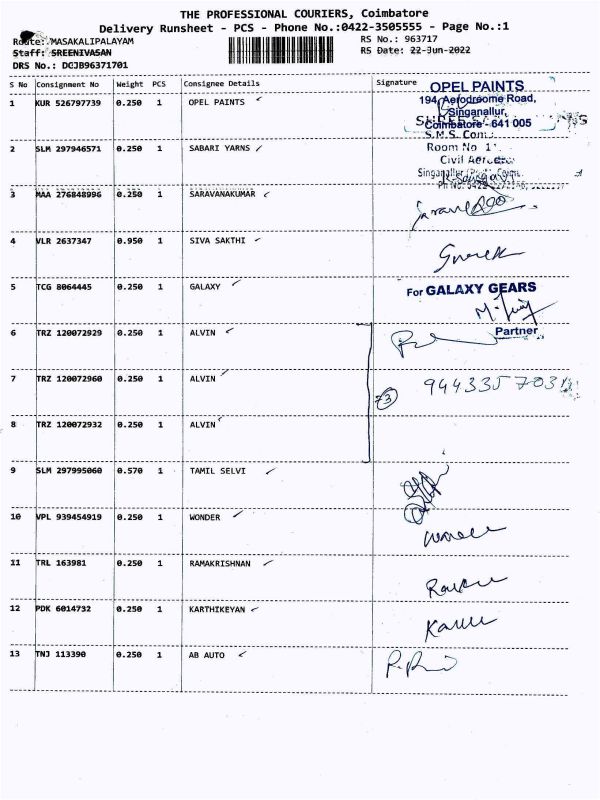 THE PROFESSIONAL COURIERS, Coimbatore
Delivery Runsheet - PCS - Phone No.:0422-3505555 - Page No.:1
Route: MASAKALIPALAYAM RS No.: 963717
Staff: SREENIVASAN RS Date: 22-Jun-2022
DRS No.: DCJB96371701
S No Consignment No Weight PCS Consignee Details Signature
OPEL PAINTS
1 KUR 526797739 0.250 1 OPEL PAINTS 194, Aerodreome Road,
Singanallur,
Coimbatore - 641 005
S.M.S.
2 SLM 297946571 0.250 1 SABARI YARNS Room No
Civil
Singanallur
3 MAA 276848996 0.250 1 SARAVANAKUMAR
4 VLR 2637347 0.950 1 SIVA SAKTHI
5 TCG 8064445 0.250 1 GALAXY For GALAXY GEARS
Partner
6 TRZ 120072929 0.250 1 ALVIN
7 TRZ 120072960 0.250 1 ALVIN
3
8 TRZ 120072932 0.250 1 ALVIN
9 SLM 297995060 0.570 1 TAMIL SELVI
10 VPL 939454919 0.250 1 WONDER
11 TRL 163981 0.250 1 RAMAKRISHNAN
12 PDK 6014732 0.250 1 KARTHIKEYAN
13 TNJ 113390 0.250 1 AB AUTO